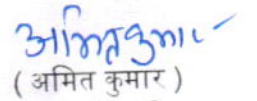 अमित कुमार
( अमित कुमार )